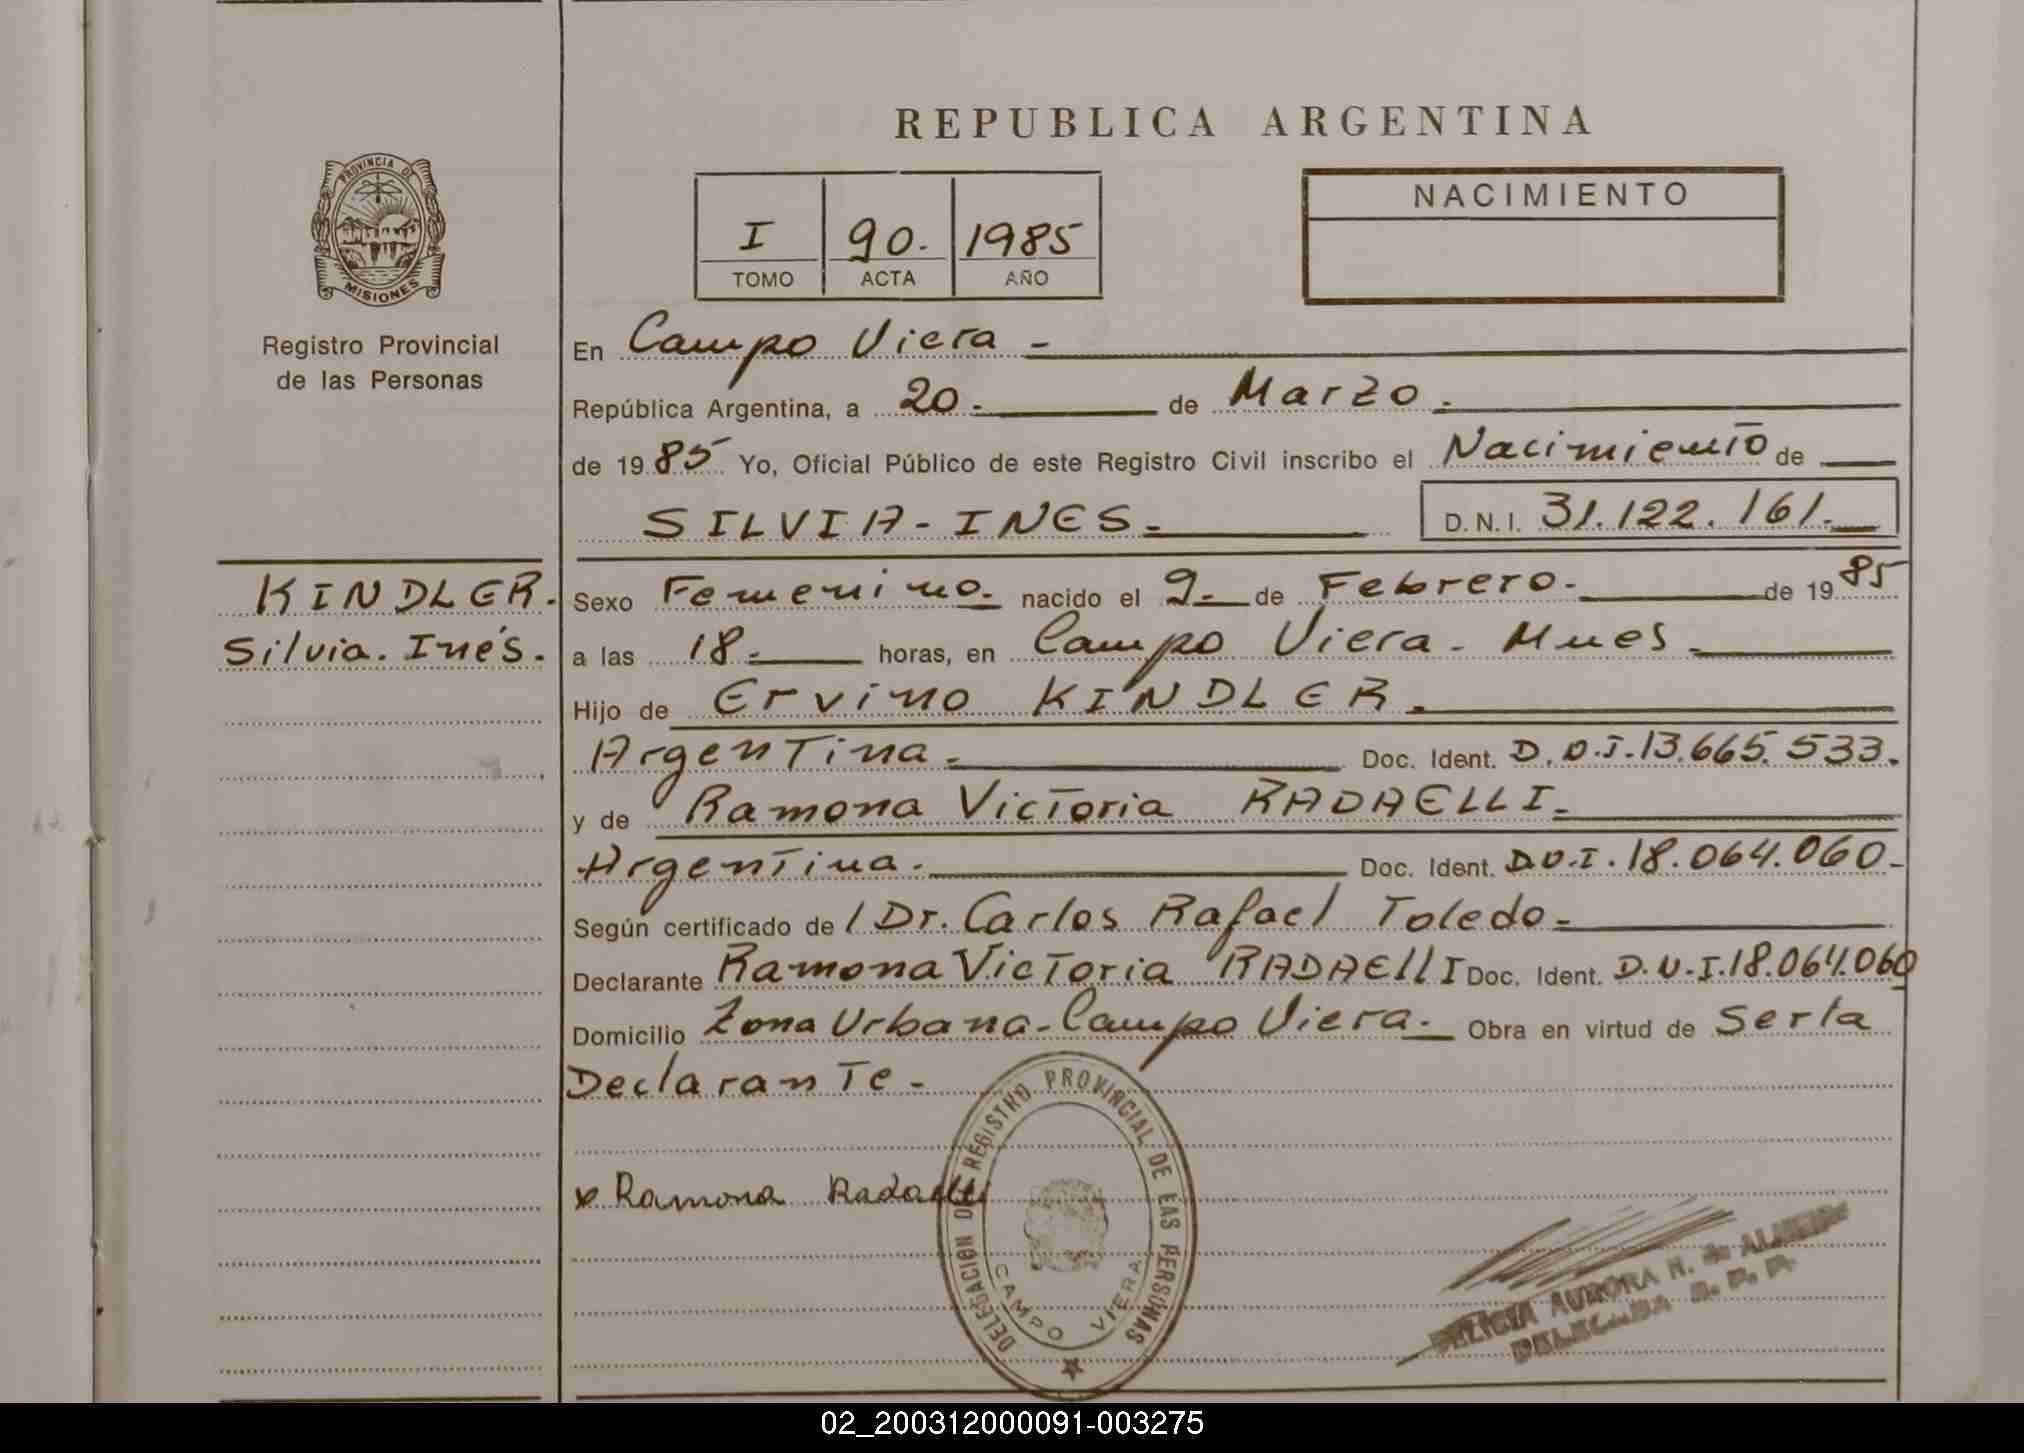 REPUBLICA ARGENTINA
PROVINCIA DE
MISIONES
Registro Provincial
de las Personas
I 90. 1985
TOMO ACTA AÑO
NACIMIENTO
En Campo Viera -
República Argentina, a 20.- de Marzo.
de 1985 Yo, Oficial Público de este Registro Civil inscribo el Nacimiento de
SILVIA - INES.- D.N.I. 31.122.161.
KINDLER.
Silvia. Inés.
Sexo Femenino. nacido el 9.- de Febrero.- de 1985
a las 18.- horas, en Campo Viera - Mnes.
Hijo de Ervino KINDLER.
Argentina.- Doc. Ident. D.N.I. 13.665.533.
y de Ramona Victoria RADAELLI.-
Argentina.- Doc. Ident. D.N.I. 18.064.060-
Según certificado de / Dr. Carlos Rafael Toledo.-
Declarante Ramona Victoria RADAEllI Doc. Ident. D.N.I. 18.064.060
Domicilio Zona Urbana - Campo Viera.- Obra en virtud de Serla
Declarante -
x Ramona Radaelli
DELEGACION DE REGISTRO PROVINCIAL DE LAS PERSONAS
CAMPO VIERA
DELICIA AURORA N. de ALMEIDA
DELEGADA R. P. P.
02_200312000091-003275